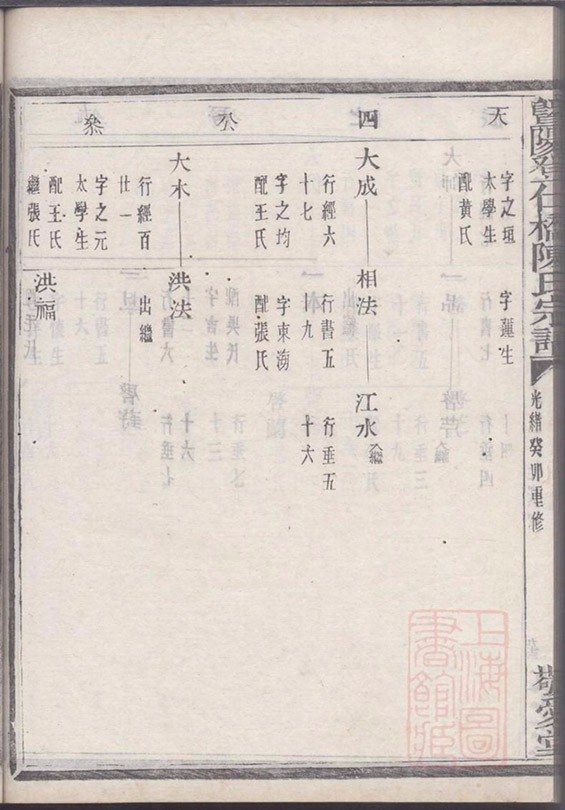 暨陽登仕橋陳氏宗譜
光緒癸卯重修
敬愛堂
天
四
叁
字之垣 字蓮生
太學生
配黃氏
大成 相法 江水入繼
行經六 行書五 行垂五
十七 十九 十六
字之均 字東海
配王氏 配張氏
大木 洪法
行經百 出繼
廿一
字之元
太學生
配王氏
繼張氏 洪福
上海圖
書館藏